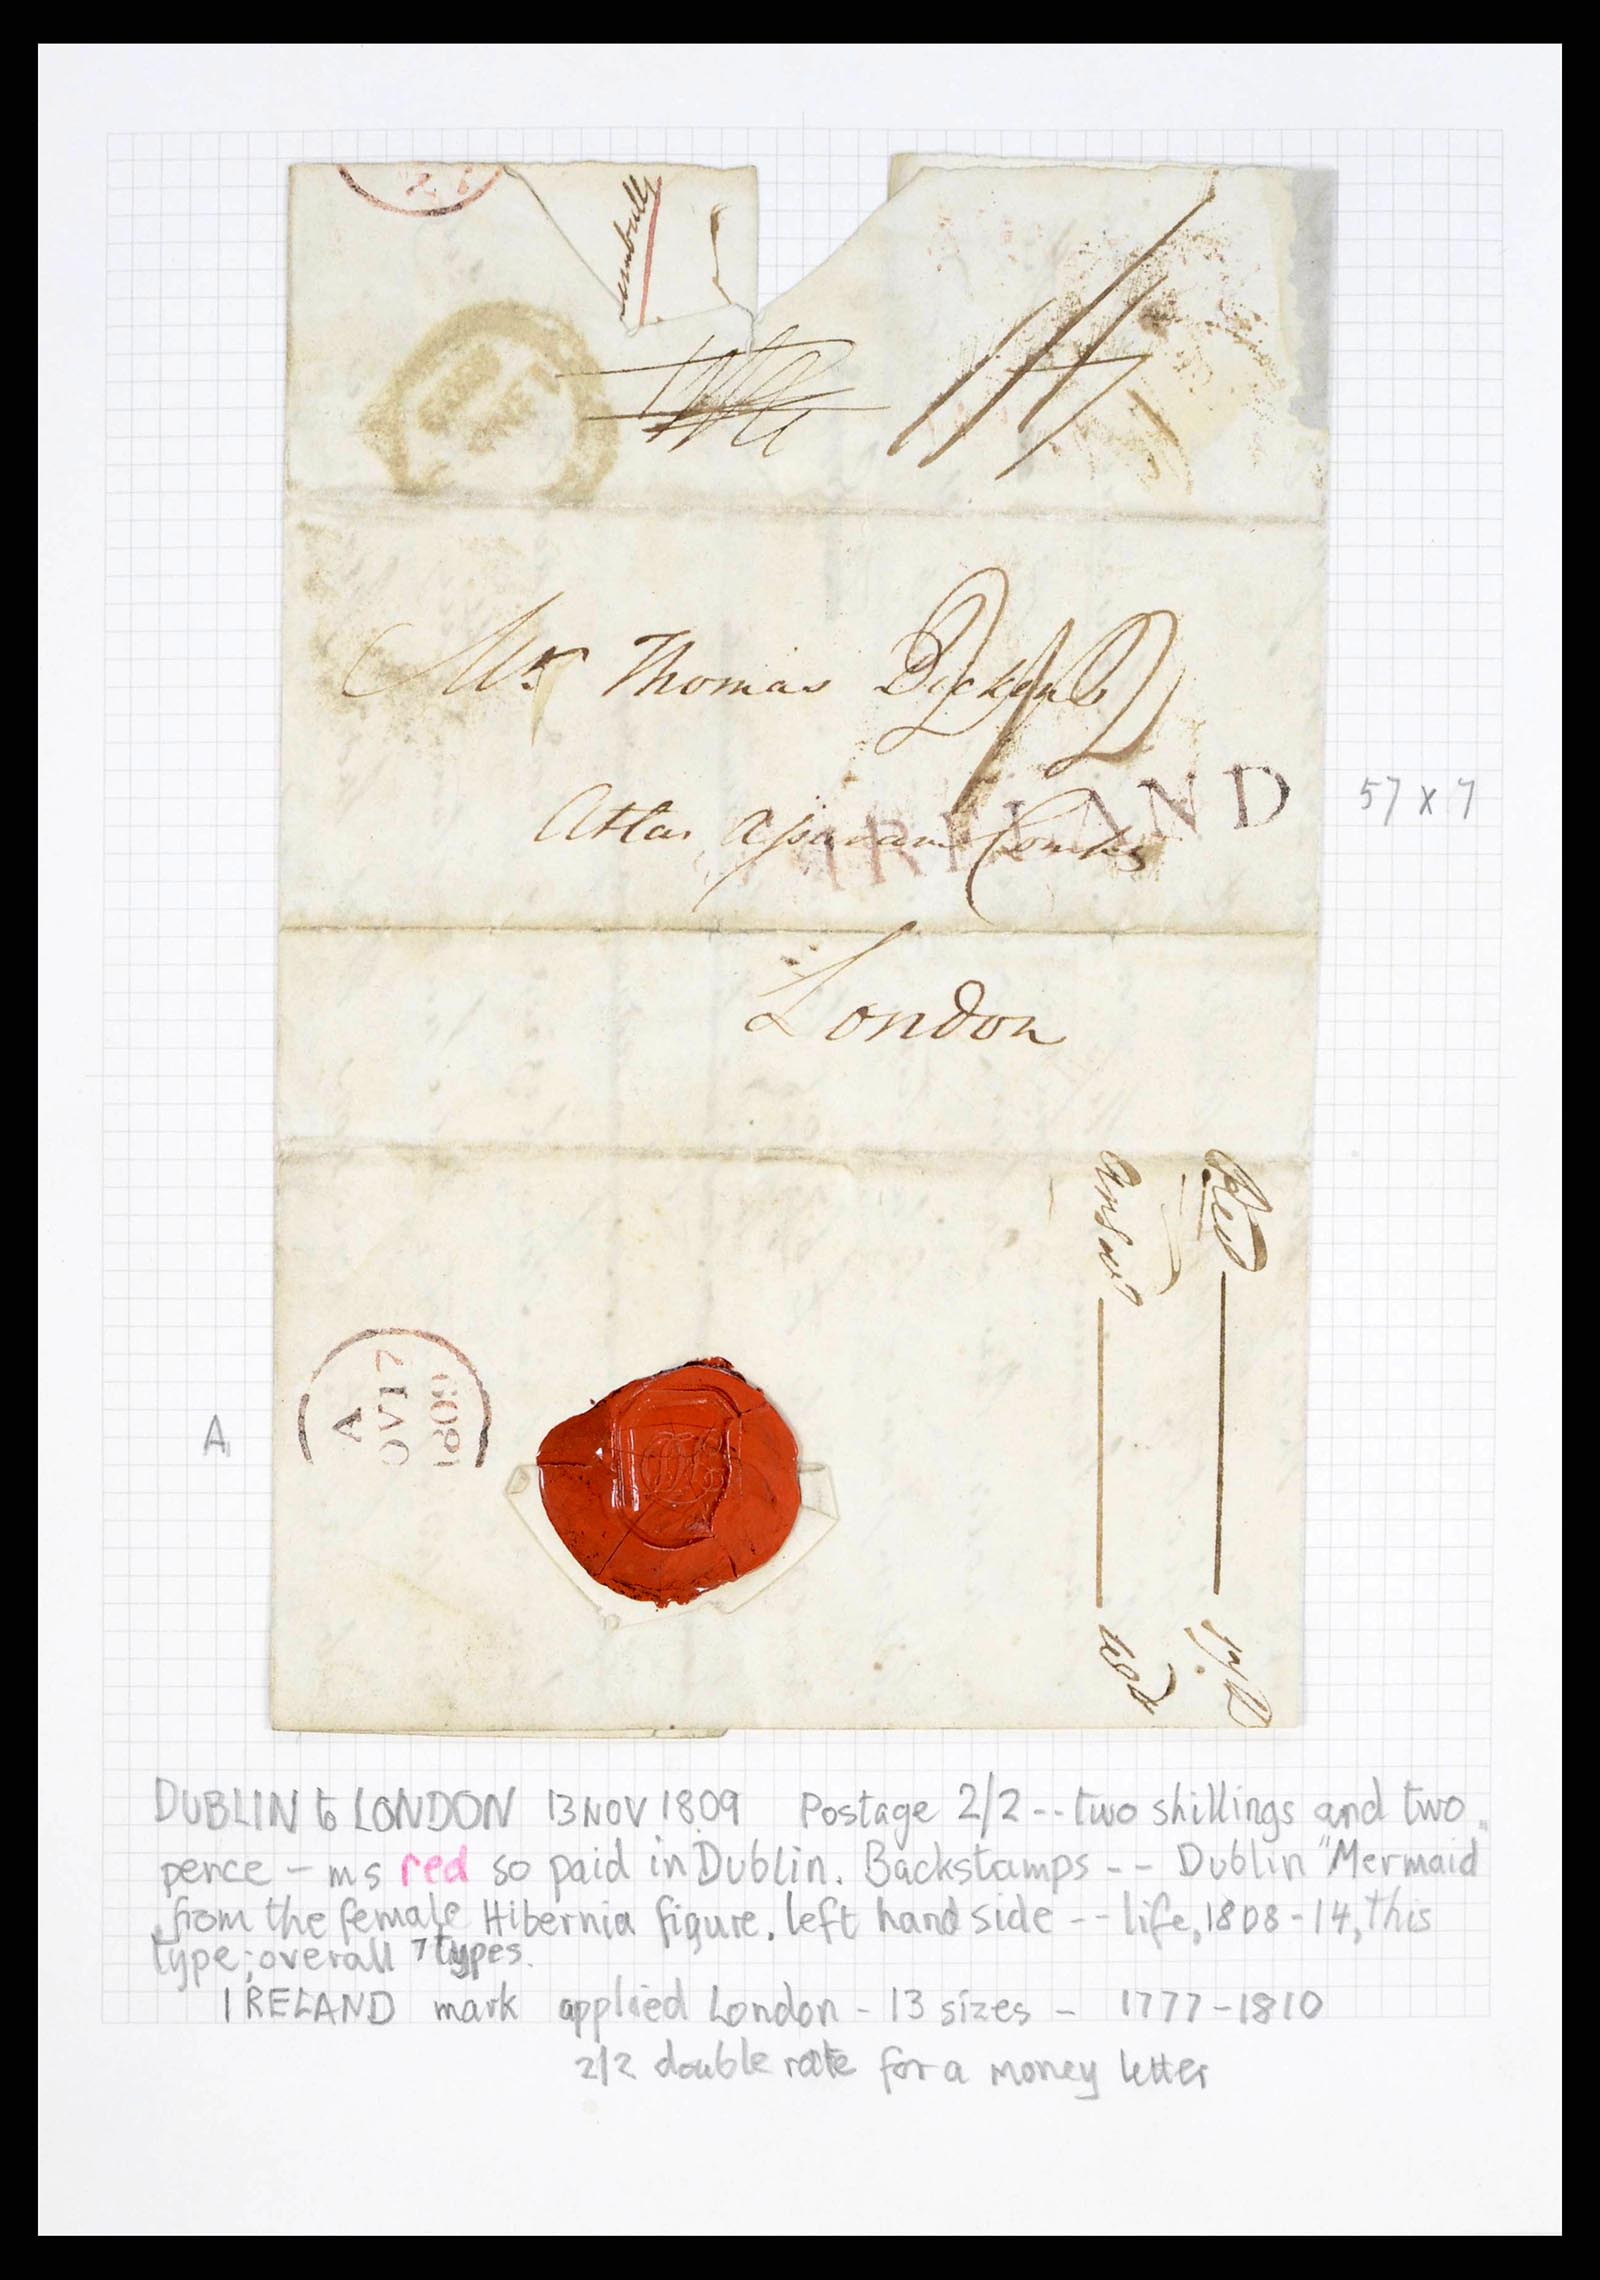 Mr Thomas Dickens
2/2
IRELAND
57 x 7
Atlas
London
Answd
Recd
A
OV 17
1809
A
DUBLIN to LONDON 13 NOV 1809 Postage 2/2 -- two shillings and two
pence - ms red so paid in Dublin. Backstamps -- Dublin "Mermaid"
from the female Hibernia figure. left hand side -- life, 1808-14, this
type; overall 7 types.
IRELAND mark applied London - 13 sizes - 1777-1810
2/2 double rate for a money letter